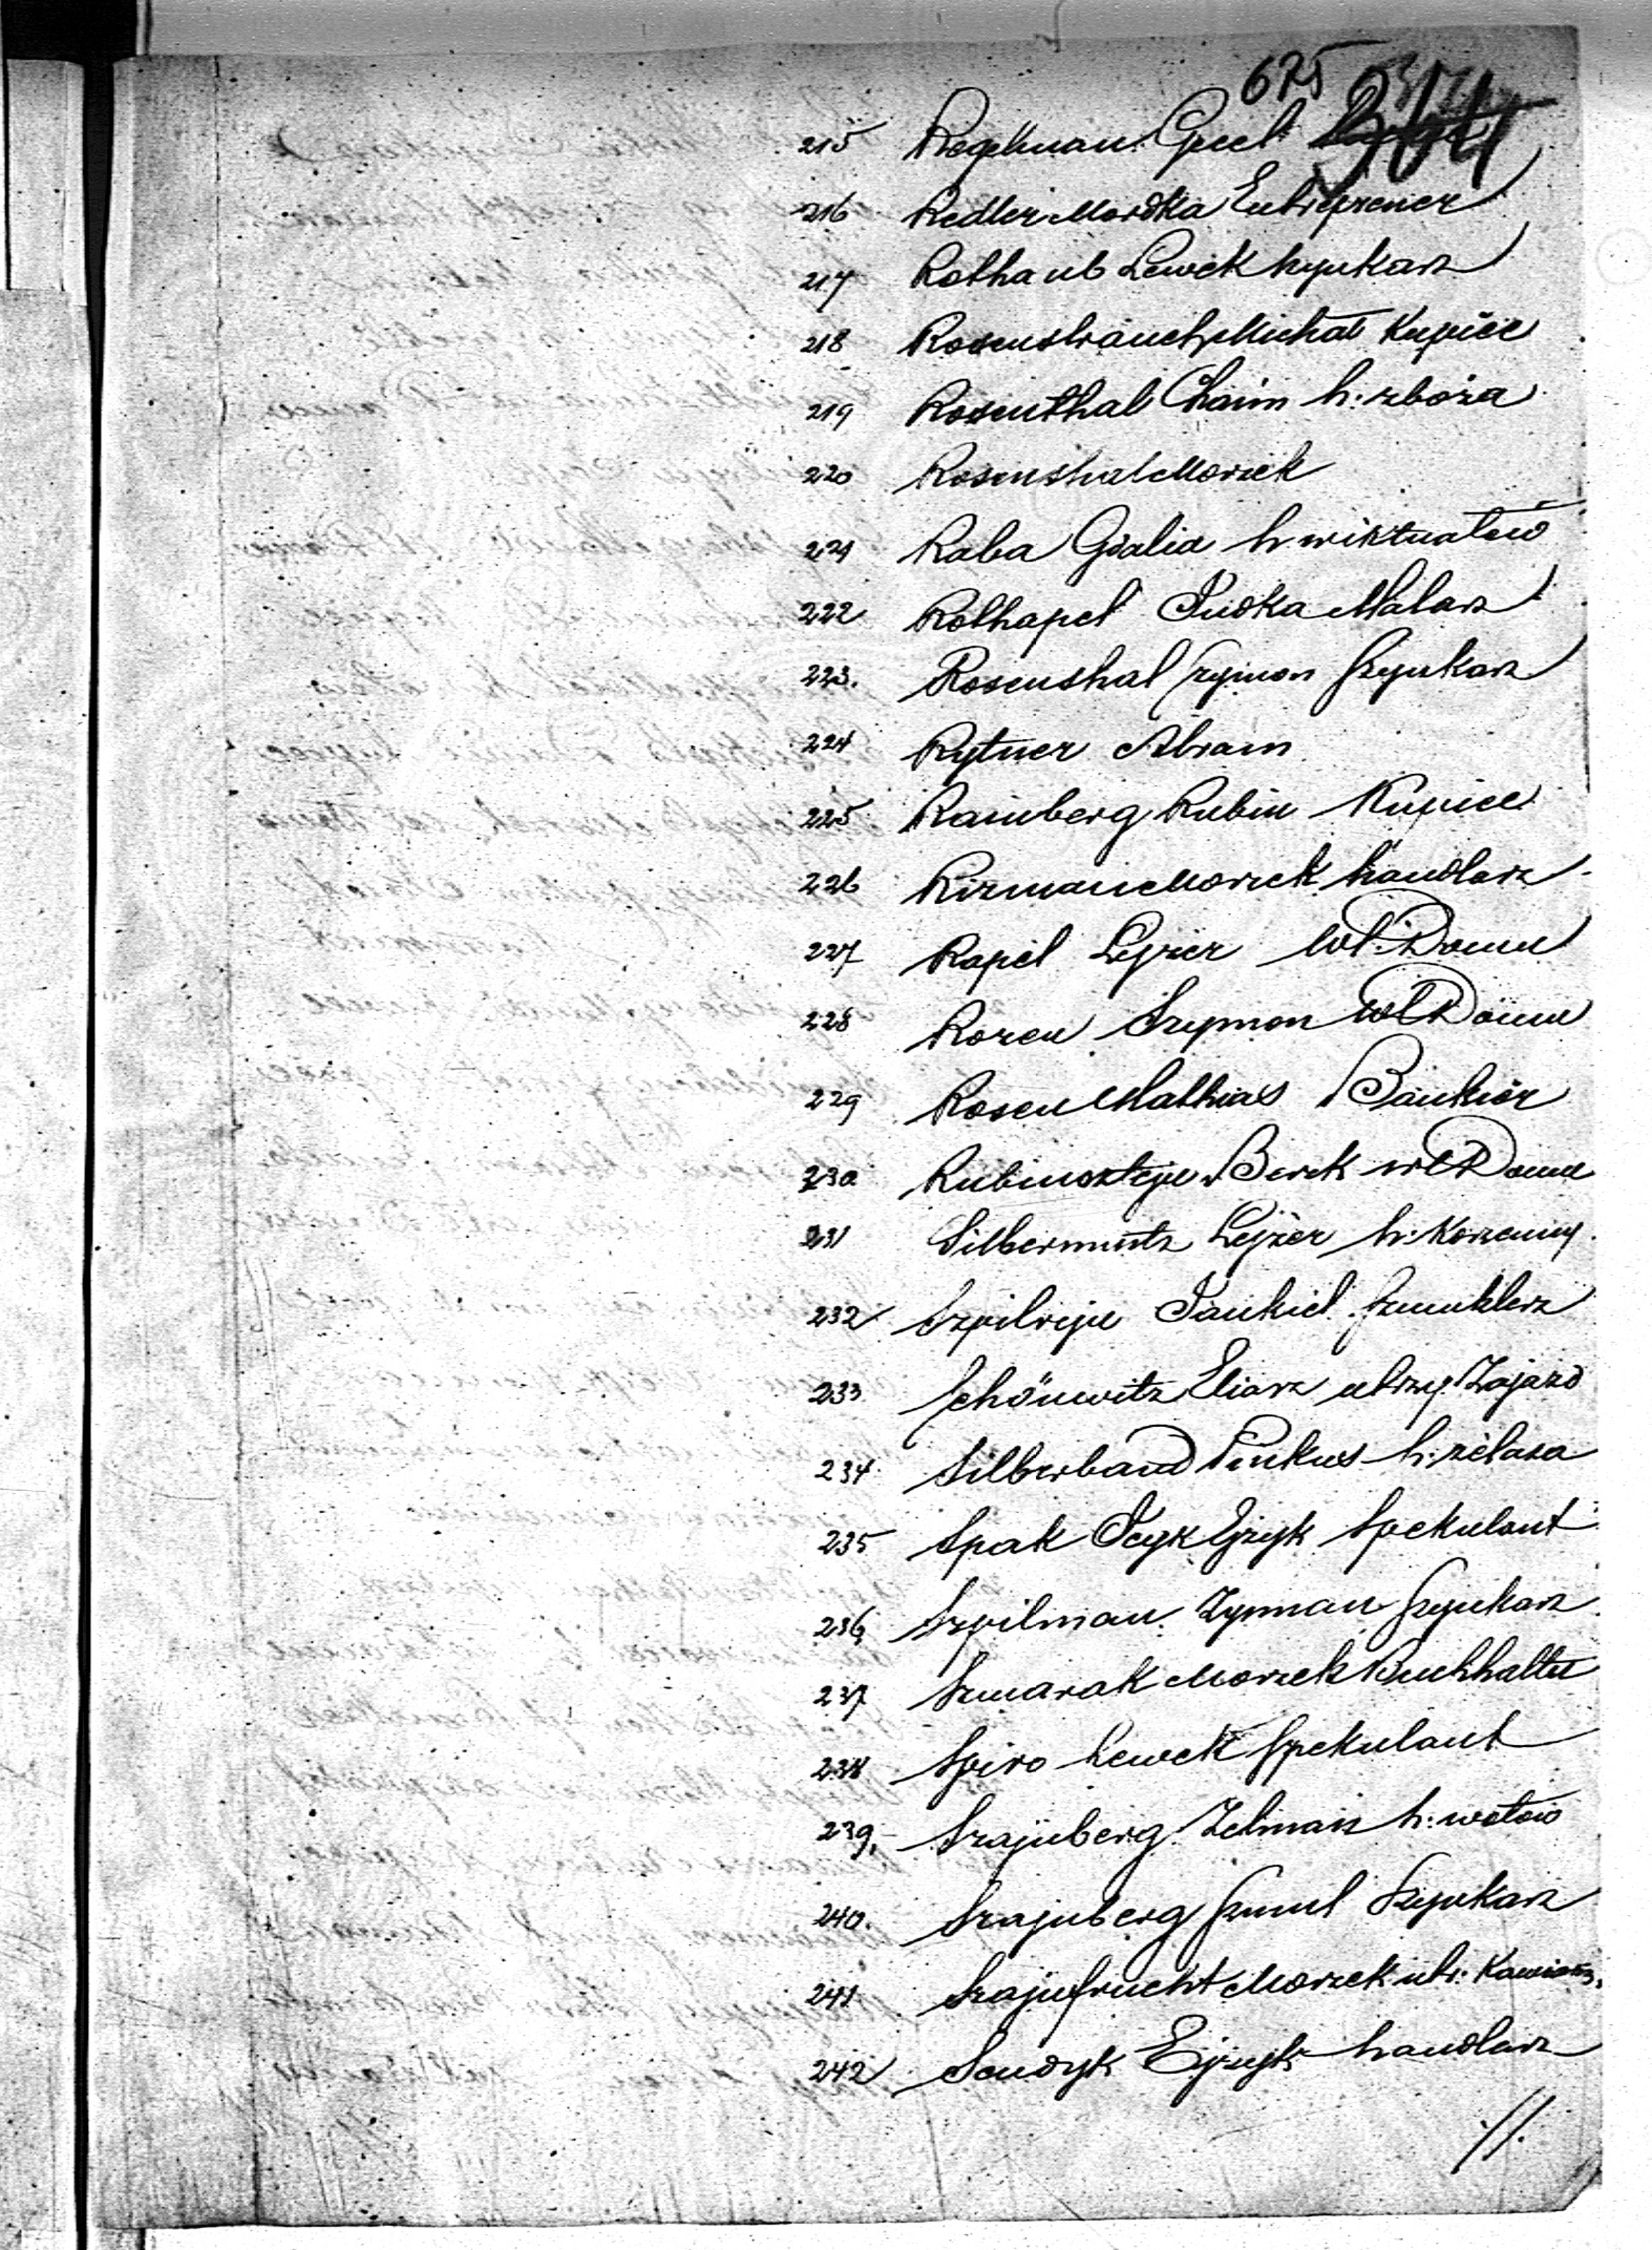 675
215 Rogelman Gecel
216 Redler Mordka Entreprener
217 Rothaub Lewek szynkarz
218 Rosenstrauch Michał Kupiec
219 Rosenthal Chaim h: zboża
220 Rosenthal Moszek
221 Raba Gdalia h: wiktuałów
222 Rothapel Judka Malarz
223. Rosenthal Szymon Szynkarz
224 Rytner Abram
225 Rainberg Rubin Kupiec
226 Rizman Moszek handlarz
227 Rapel Lejzer Wł: Domu
228 Rozen Szymon Wł Domu
229 Rosen Mathias Bankier
230 Rubinsztejn Berek wł Domu
231 Silbermintz Lejzer h: Korzenny
232 Szpilrejn Jankiel Szmuklerz
233 Schönwitz Eliasz utrzy: Zajazd
234 Silberband Pinkus h: żelaza
235 Spak Icyk Ejzyk Spekulant
236 Szpilman Zyman Szynkarz
237 Szmarak Moszek Buchhalter
238 Spiro Lewek Spekulant
239. Szajnberg Zelman h: wołów
240. Szajnberg Szmul Szynkarz
241 Szajnfrucht Moszek utr:
242 Sendyk Ejzyk handlarz
//.